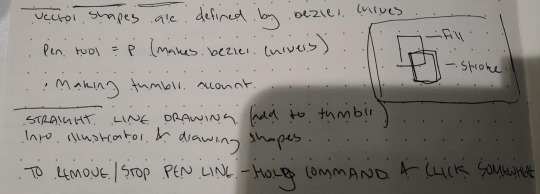 vector shapes are defined by bezier curves
Pen tool = P (makes bezier curves)
fill
stroke
· Making tumblr account
STRAIGHT LINE DRAWING (add to tumblr)
Into illustrator & drawing shapes
TO REMOVE/STOP PEN LINE - HOLD COMMAND & CLICK SOMEWHERE